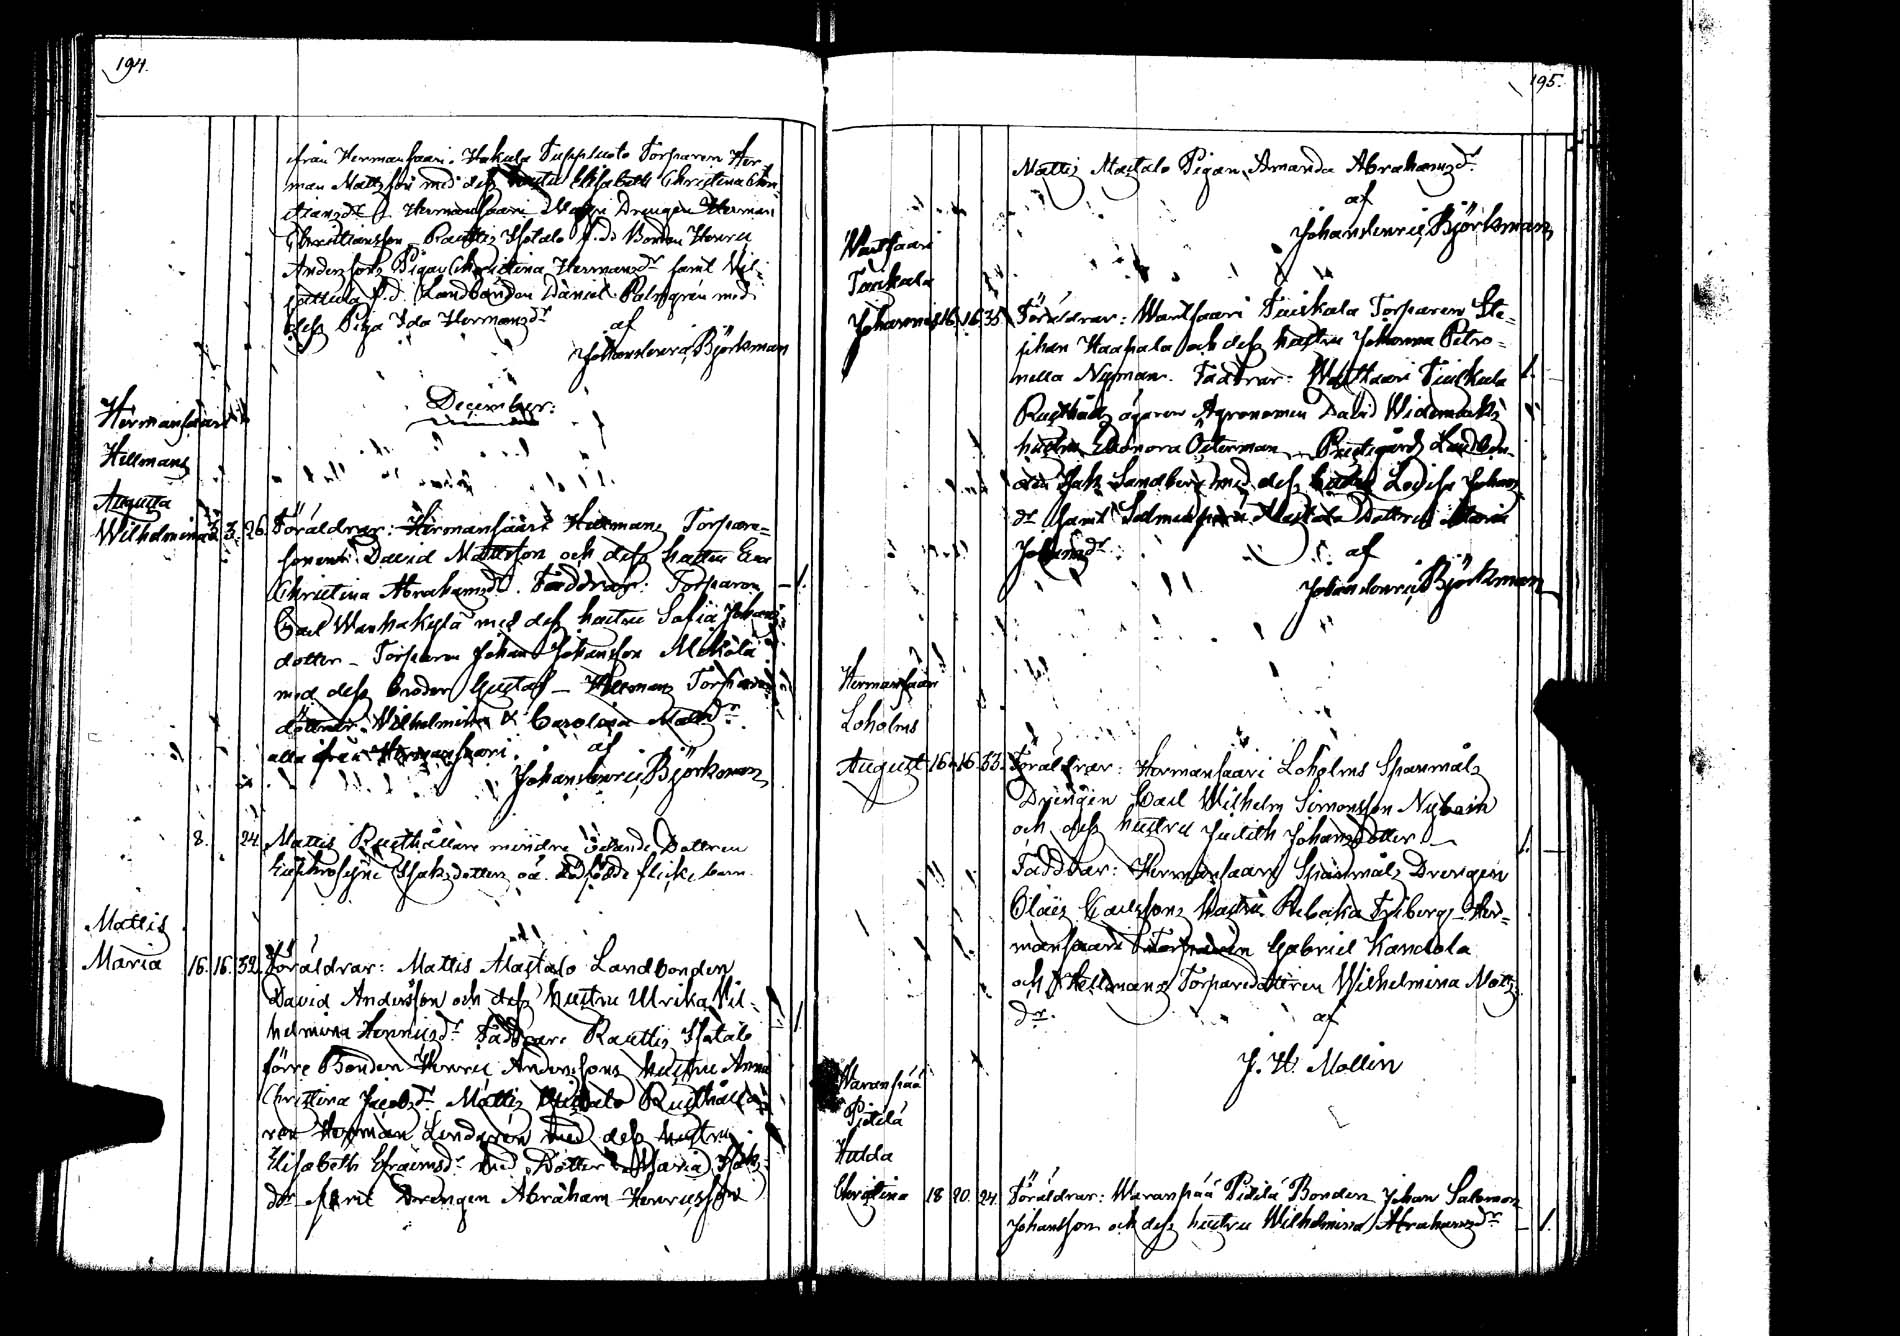 194.
från Hermansaari. Hakula Torparen Her
man Mattsson med dess hustru Elisabeth Christina Chris
tiansdr Hermansaari Drengen Herman
Christiansson Rautis Isotalo f.d. Bonden Henric
Anderssons Pigan Christina Hermansdr samt Vil-
f.d. Landbonden Daniel Palmgren med
dess Piga Ida Hermansdr
af
Johan Henric Björkman
December:
Hermansaari
Hellmans
Augusta
Wilhelmina 3. 3. 26. Föräldrar: Hermansaari Hellmans Torpare-
sonen David Mattsson och dess hustru Eva
Christina Abrahamsdr. Faddrar: Torparen 1.
Carl Wanhakylä med dess hustru Sofia Johans
dotter – Torparen Johan Johansson Mekola
med dess broder Gustaf – Hellmans Torpare
döttrar Wilhelmina & Carolina Mattsdr.
alla från Hermansaari.
af
Johan Henric Björkman
8. 24. Mattis Rusthållare mindre vetande Dottren
Euphrosyne Isaksdotters oä. dödfödde flickebarn.
Mattis
Maria 16. 16. 32. Föräldrar: Mattis Alastalo Landbonden
David Andersson och dess hustru Ulrika Vil-
helmina Henricsdr. Faddrar: Rautis Isotalo 1.
förre Bonden Henric Anderssons hustru Anna
Christina Jacobsdr. Mattis Ylistalo Rusthålla
ren Herman Lindgren med dess hustru
Elisabeth Efraimsdr. med Dotter Maria Isaks
dr samt Drengen Abraham Henricsson
195.
Mattis Alastalo Pigan Amanda Abrahamsdr.
af
Johan Henric Björkman
Wartsaari
Tuiskula
Johannes 16. 16. 35. Föräldrar: Wartsaari Tuiskula Torparen Ste-
phan Haapala och dess hustru Johanna Petro-
nella Nyman. Faddrar: Wartsaari Tuiskula 1.
Rusthålls ägaren Agronomen David Widemarks
hustru Eleonora Österman – Prestgårds Landbon-
den Isak Sandberg med dess hustru Lovisa Johans
dr samt Alastalo Dottren Maria
Johansdr.
af
Johan Henric Björkman
Hermansaari
Loholms
August 16. 16. 33. Föräldrar: Hermansaari Loholms Spanmåls
Drengen Carl Wilhelm Simonsson Nybom
och dess hustru Judith Johansdotter – 1.
Faddrar: Hermansaari Spanmåls Drengen
Carlssons hustru Rebecka Friberg – Her-
mansaari Torparen Gabriel Kandola
och Hellmans Torparedottren Wilhelmina Matts
dr.
af
J. H. Mollin
Waranpää
Pidilä
Hulda
Christina 18 20. 24. Föräldrar: Waranpää Pidilä Bonden Johan Salomon
Johansson och dess hustru Wilhelmina Abrahamsdr – 1.